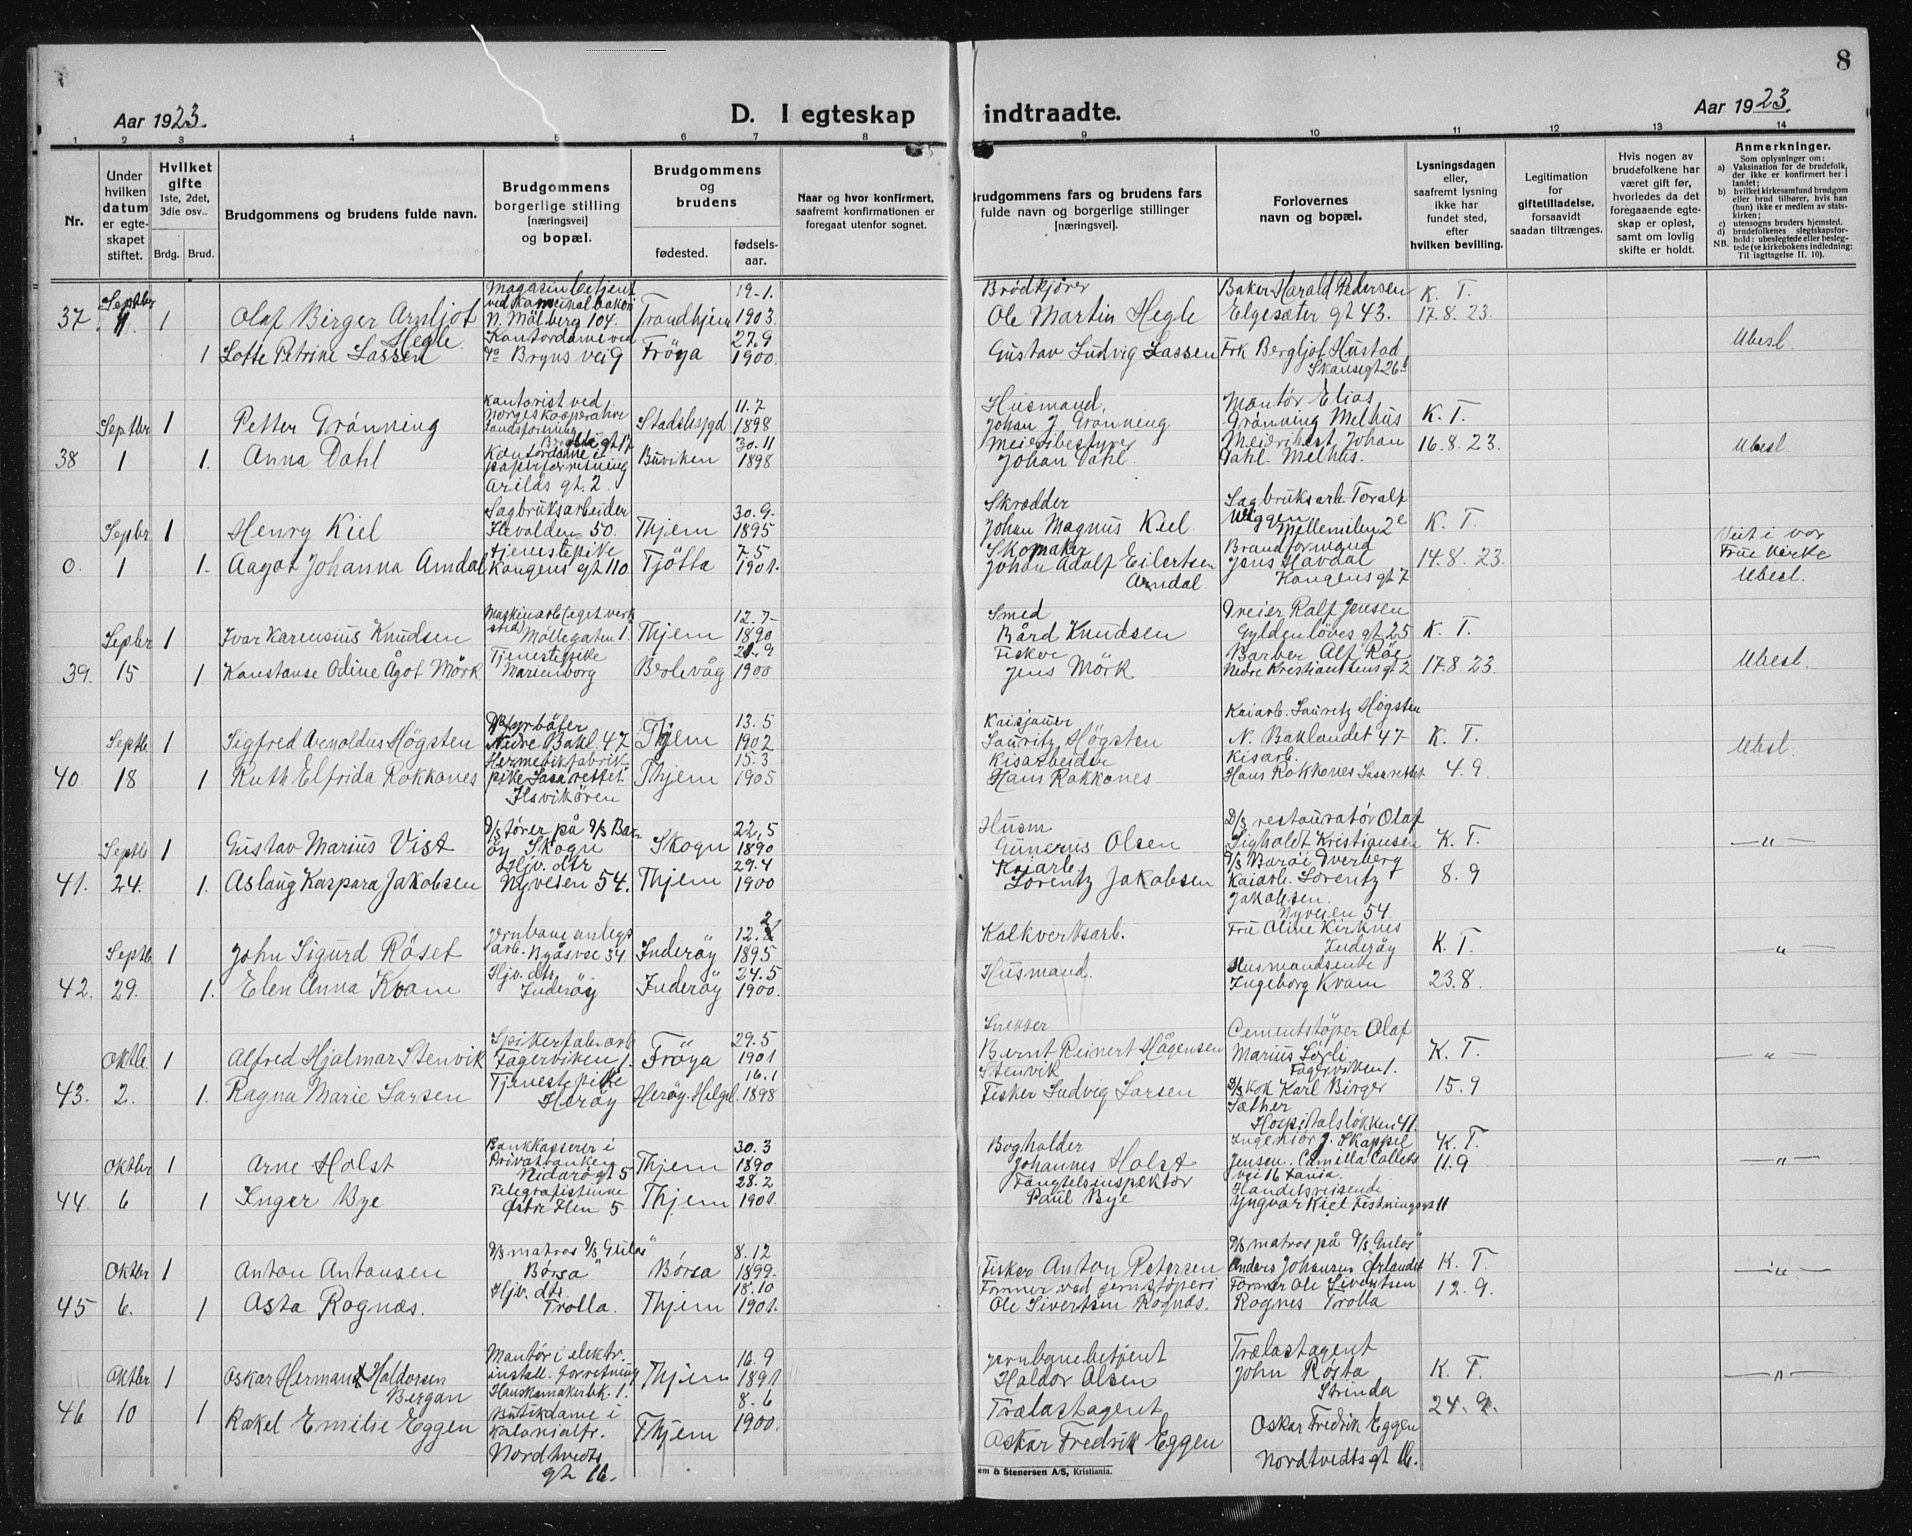 8
Aar 1923. D. I egteskap indtraadte. Aar 1923.
1 2 3 4 5 6 7 8 9 10 11 12 13 14
Nr.
Under hvilken datum er egteskapet stiftet.
Hvilket gifte 1ste, 2det, 3die osv..
Brdg. Brud.
Brudgommens og brudens fulde navn.
Brudgommens borgerlige stilling [næringsvei] og bopæl.
Brudgommens og brudens
fødested. fødsels-aar.
Naar og hvor konfirmert, saafremt konfirmationen er foregaat utenfor sognet.
Brudgommens fars og brudens fars fulde navn og borgerlige stillinger [næringsvei].
Forlovernes navn og bopæl.
Lysningsdagen eller, saafremt lysning ikke har fundet sted, efter hvilken bevilling.
Legitimation for giftetilladelse, forsaavidt saadan tiltrænges.
Hvis nogen av brudefolkene har været gift før, hvorledes da det foregaaende egteskap er opløst, samt om lovlig skifte er holdt.
Anmerkninger.
Som oplysninger om:
a) Vaksination for de brudefolk, der ikke er konfirmert her i landet;
b) hvilket kirkesamfund brudgom eller brud tilhører, hvis han (hun) ikke er medlem av statskirken;
c) utensogns bruders hjemsted.
d) brudefolkenes slegtskapsforhold: ubeslegtede eller beslegtede (se kirkebokens indledning: Til iagttagelse II. 10).
NB.
37 Septbr 1 1 Olaf Birger Arnljot Hegle N. Mölberg 104. Trondhjem 19-1. 1903. Brödkjörer Ole Martin Hegle Baker Harald Pedersen Elgesæter gt 43. K. T. 17.8.23.
1 Lotte Petrine Lassen Kontordame ved Bryns vei 9 Fröya 27.9 1900. Gustav Ludvig Lassen Frk Bergljot Hustad Skansegt 26 Ubesl.
Septbr 1 Petter Grönning Kontorist ved Norges kooperative Landsforening Stadsbygd 11.7 1898 Husmand, Johan J. Grönning Montör Elias Grönning Melhus K. T.
38 1 1. Anna Dahl Kontordame i papirforretning Arilds gt. 2 Buviken 30.11 1898 Meieribestyrer Johan Dahl. Meieribest. Johan Dahl. Melhus. 16.8.23. Ubesl.
Sepbr 1 Henry Kiel Sagbruksarbeider Ilevolden 50. Thjem 30.9. 1895 Skrædder Johan Magnus Kiel Sagbruksarb. Toralf Wiggen Mellemilen 2e K. T. Viet i vor Frue Kirke
0. 1 1. Aagot Johanna Arndal tjenestepike Kongens gt 110. Tjötta 7.5 1901. Skomaker Johan Adolf Eilertsen Arndal. Brandformand Jens Havdal Kongens gt 7 14.8.23. Ubesl.
Sepbr 1 Ivar Karensius Knudsen Maskinarb (eget verksted) Möllegaten 1. Thjem 12.7- 1890 Smed Bård Knudsen Dreier Ralf Jensen Gyldenlöves gt. 25 K. T.
39. 15 1 Konstanse Odine Ågot Mörk Tjenestepike Marienborg Berlevåg 21.9 1900 Fisker Jens Mörk Barber Alf Röe Nedre Kristianstens gt 2 17.8.23. Ubesl.
Septb 1 Sigfred Arnoldus Högsten fyrböter Nedre Bakl. 47 Thjem 13.5 1902 Kaisjauer Lauritz Högsten Kaiarb. Lauritz Högsten N. Baklandet 47- K. T. Ubesl.
40 18 1 Ruth Elfrida Rokkones Hermetikfabrikpike Lasarettet Ilsvikören Thjem 15.3 1905 Kisarbeider Hans Rokkones Kisarb. Hans Rokkones Lasarettet 4.9.
Septb 1 Gustav Marius Vist D/s förer på D/s Baröy Skogn Skogn 22.5 1890 Husm Gunerus Olsen D/s restauratör Olaf Sigholdt Kristiansen D/s Baröi Dverberg K. T. —"—
41. 24. 1. Aslaug Kaspara Jakobsen Hjv. dtr Nyveien 54. Thjem 29.4 1900 Kaiarb. Lorentz Jakobsen Kaiarb. Lorentz Jakobsen. Nyveien 54. 8.9
Septb. 1 John Sigurd Röset Jernbaneanlegsarb. Byåsvei 34 Inderöy 12.2 1895 Kalkverksarb. Fru Oline Kirknes Inderöy K. T. "
42. 29. 1. Elen Anna Kvam Hjv. dtr. Inderöy Inderöy 24.5 1900. Husmand. Husmandsenke Ingeborg Kvam 23.8.
Oktb. 1 Alfred Hjalmar Stenvik Spikerfabr.arb Fagerviken 1. Fröya 29.5 1901 Snekker Bernt Reinert Hågensen Stenvik Cementstöper Olaf Marius Sörli Fagerviken 1. K. T. —"—
43. 2. 1. Ragna Marie Larsen Tjenestepike Heröy Heröy. Helgel. 16.1 1898 Fisker Ludvig Larsen D/s kok Karl Birger Sæther Hospitalslökken 41. 15.9
Oktbr 1 Arne Holst Bankkasserer i Privatbanken Nidarögt 5 Thjem 30.3 1890 Bogholder Johannes Holst Ingeniör J. Skappel Jensen. Camilla Colletsvei 16 K.T. 11.9 —"—
44. 6 1 Inger Bye Telegrafistinne Östre Ilen 5 Thjem 28.2 1901. Fængselsinspektör Paul Bye Handelsreisende Yngvar Kiel Festningsgt 11
Oktbr 1 Anton Antonsen D/s matros D/s "Gulos" Börsa Börsa 8.12 1899- Fisker Anton Petersen D/s matros på D/s Gulos Anders Johansen Örlandet K. T. —"—
45 6. 1 Asta Rognæs. Hjv. dtr. Trolla. Thjem 18.10 1901. Former ved jernstöperi Ole Sivertsen Rognæs. Former Ole Sivertsen Rognes Trolla 12.9.
Oktbr 1 Oskar Herman Holdorsen Bergan Montör i elektr. install. forretning Hanskemakerbk. 1. Thjem 16.9 1891 Jernbanebetjent Holdor Olsen Trælastagent John Rösta Strinda K. T. —"—
46 10 1 Rakel Emilie Eggen Butikdame i kolonialfr. Nordtvedts gt 16. Thjem 8.6 1900. Trælastagent Oskar Fredrik Eggen Oskar Fredrik Eggen Nordtvedts gt 16. 24.9.
em & Stenersen A/S, Kristiania.